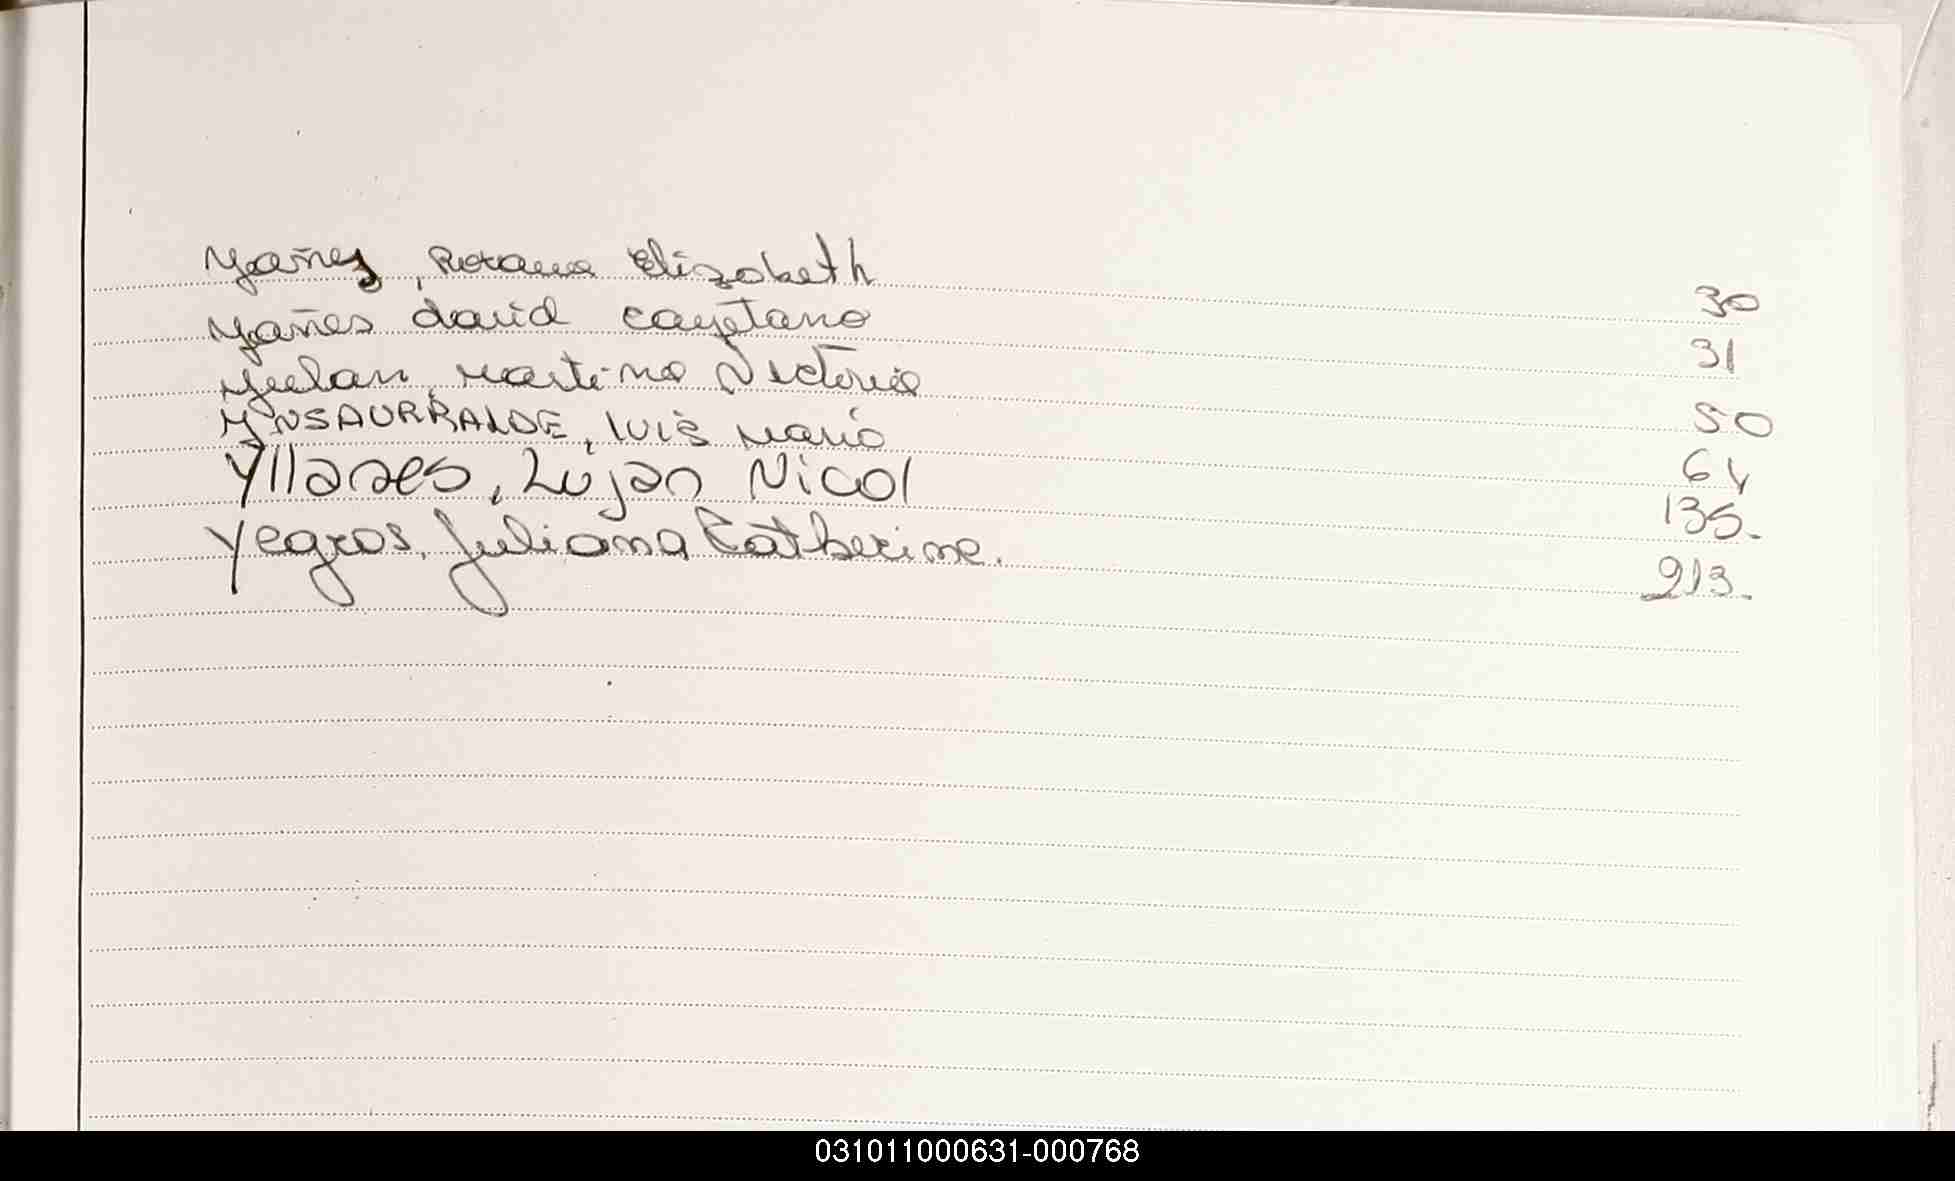 Yañez, Roxana Elizabeth 30
Yañes david cayetano 31
Yulan, Martina Victoria 50
YNSAURRALDE, LUIS Mario 64
Yllanes, Luján Nicol 135.
Yegros, Juliana Catherine. 213.
031011000631-000768